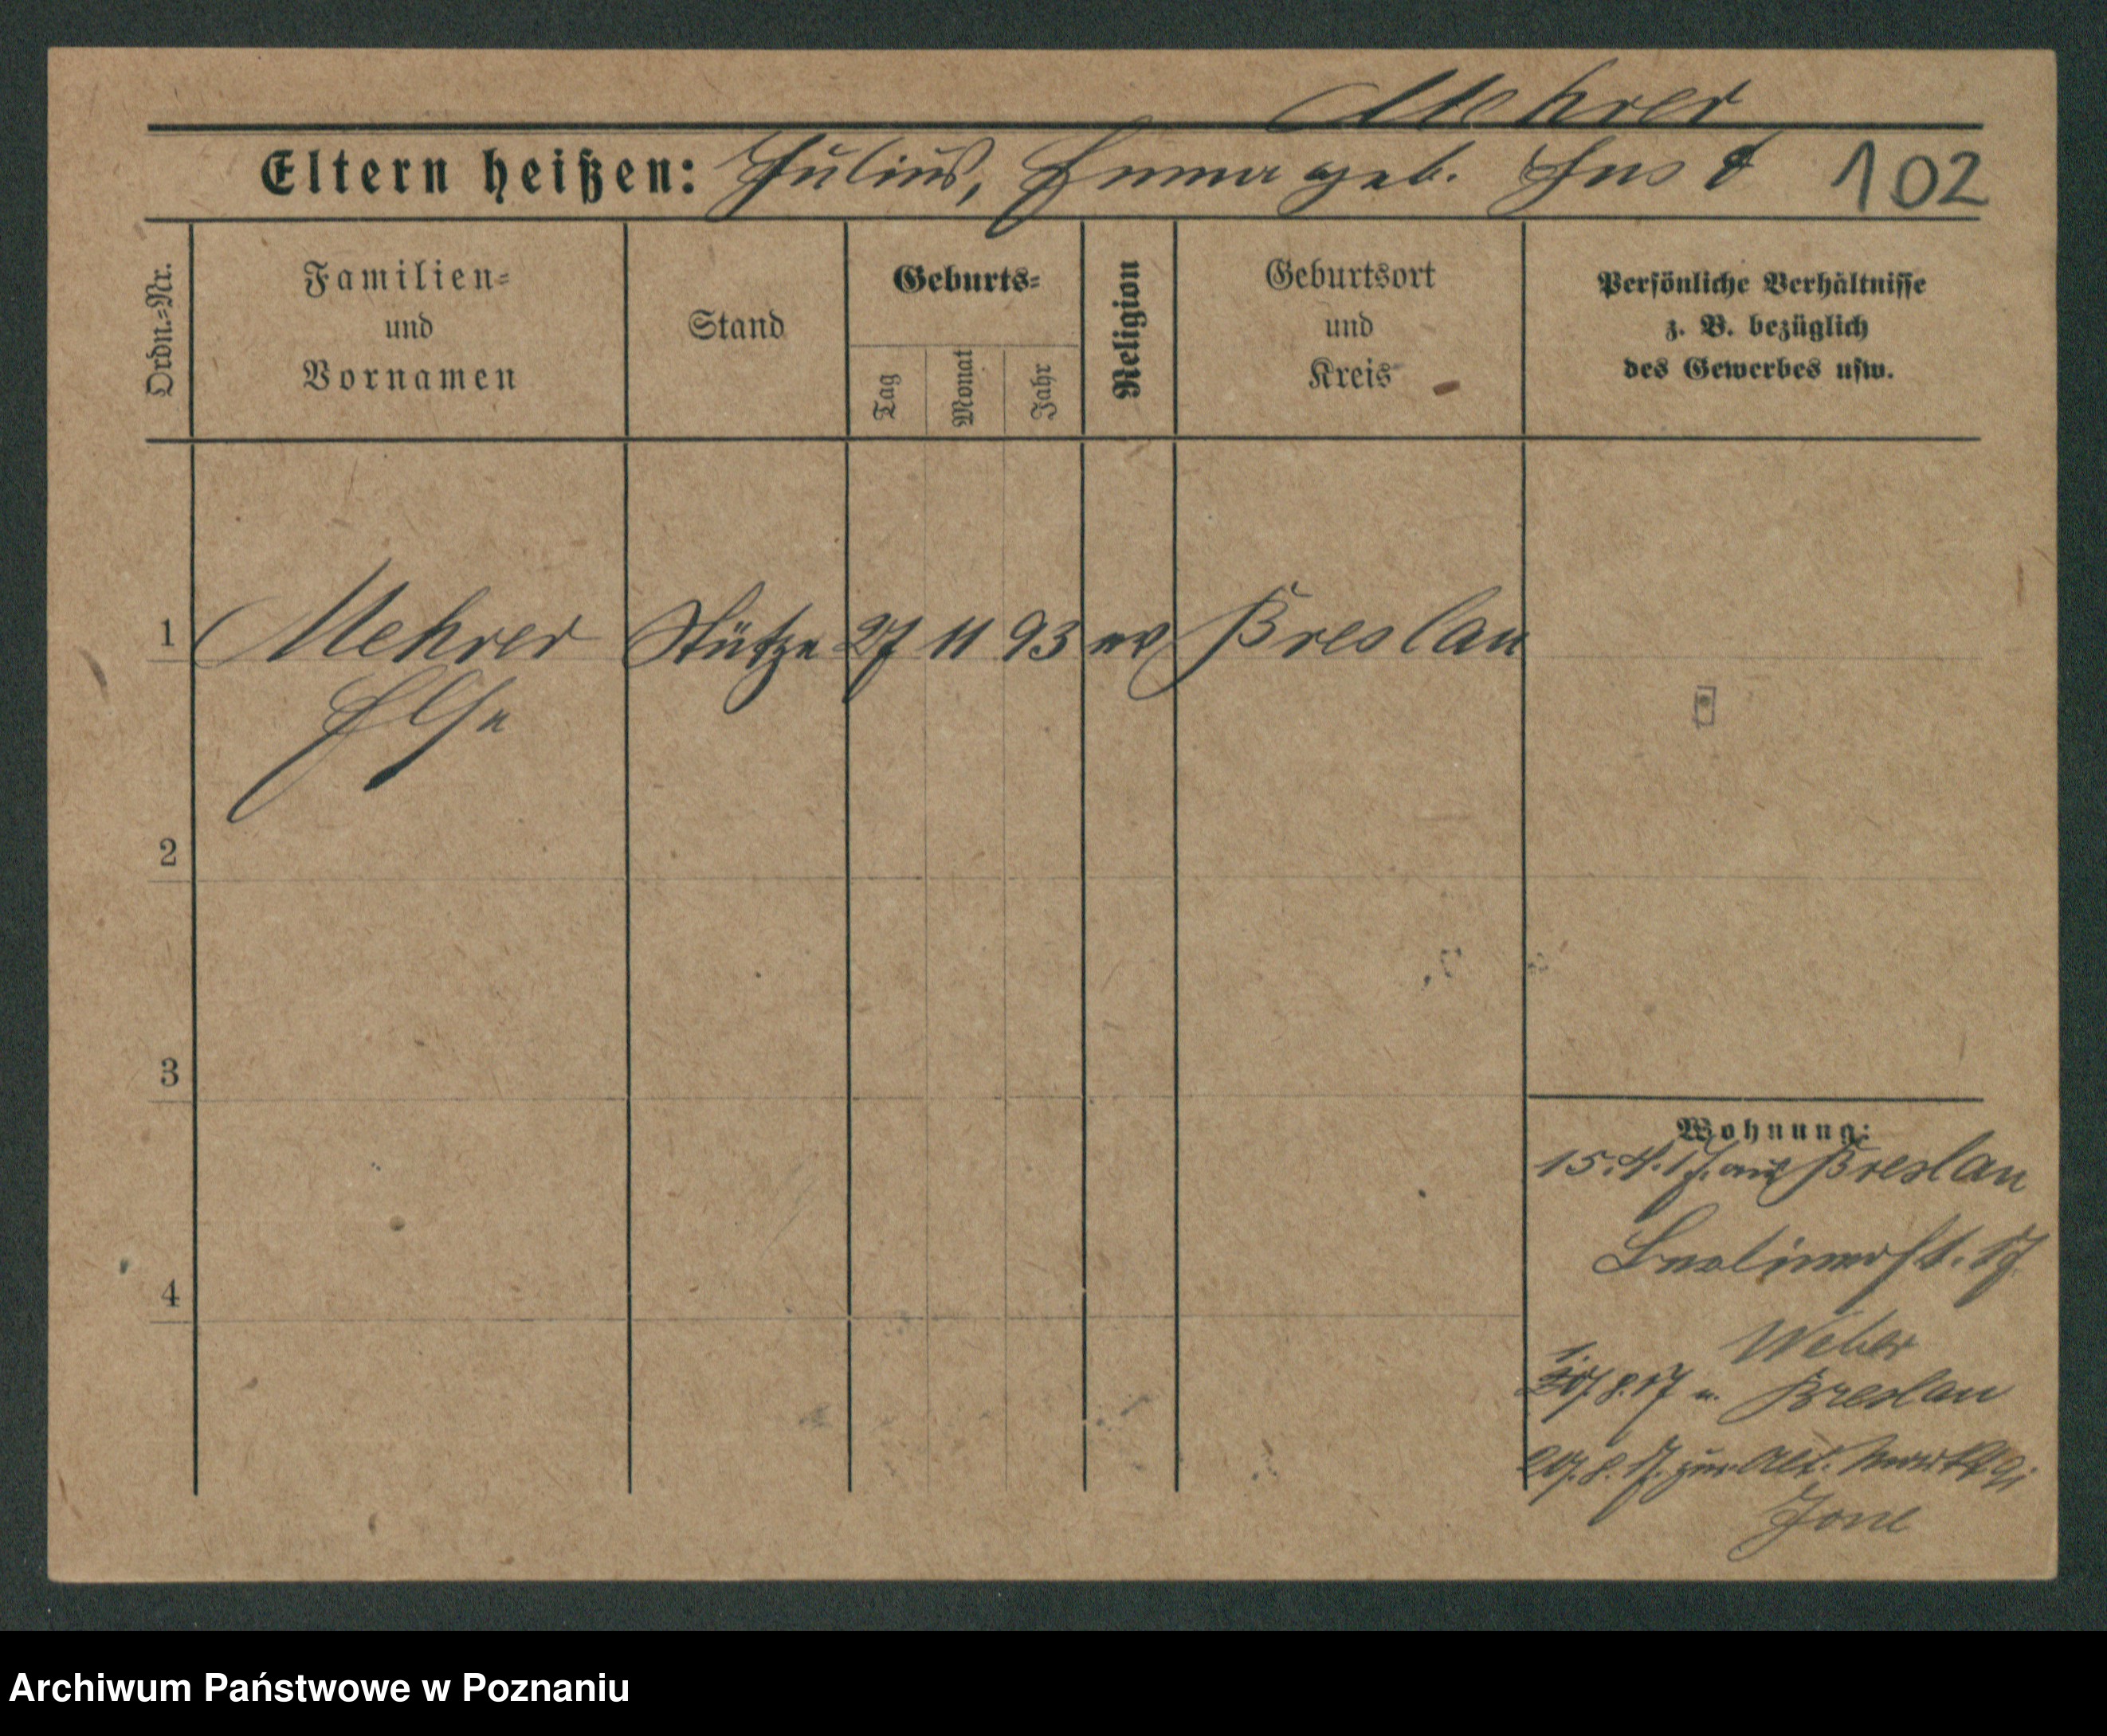 Mehrer
Eltern heißen: Julius, Emma geb. 102
Ordn.-Nr.
Familien-
und
Vornamen
Stand
Geburts-
Tag
Monat
Jahr
Religion
Geburtsort
und
Kreis
Persönliche Verhältnisse
z. B. bezüglich
des Gewerbes usw.
1 Mehrer Stütze 27 11 93 ev Breslau
Else
2
3
4
Wohnung:
15.4.17. aus Breslau
Berlinerst. 17
Weber
8.17 n. Breslau
8.17. zur. Alt. Markt
Jone
Archiwum Państwowe w Poznaniu